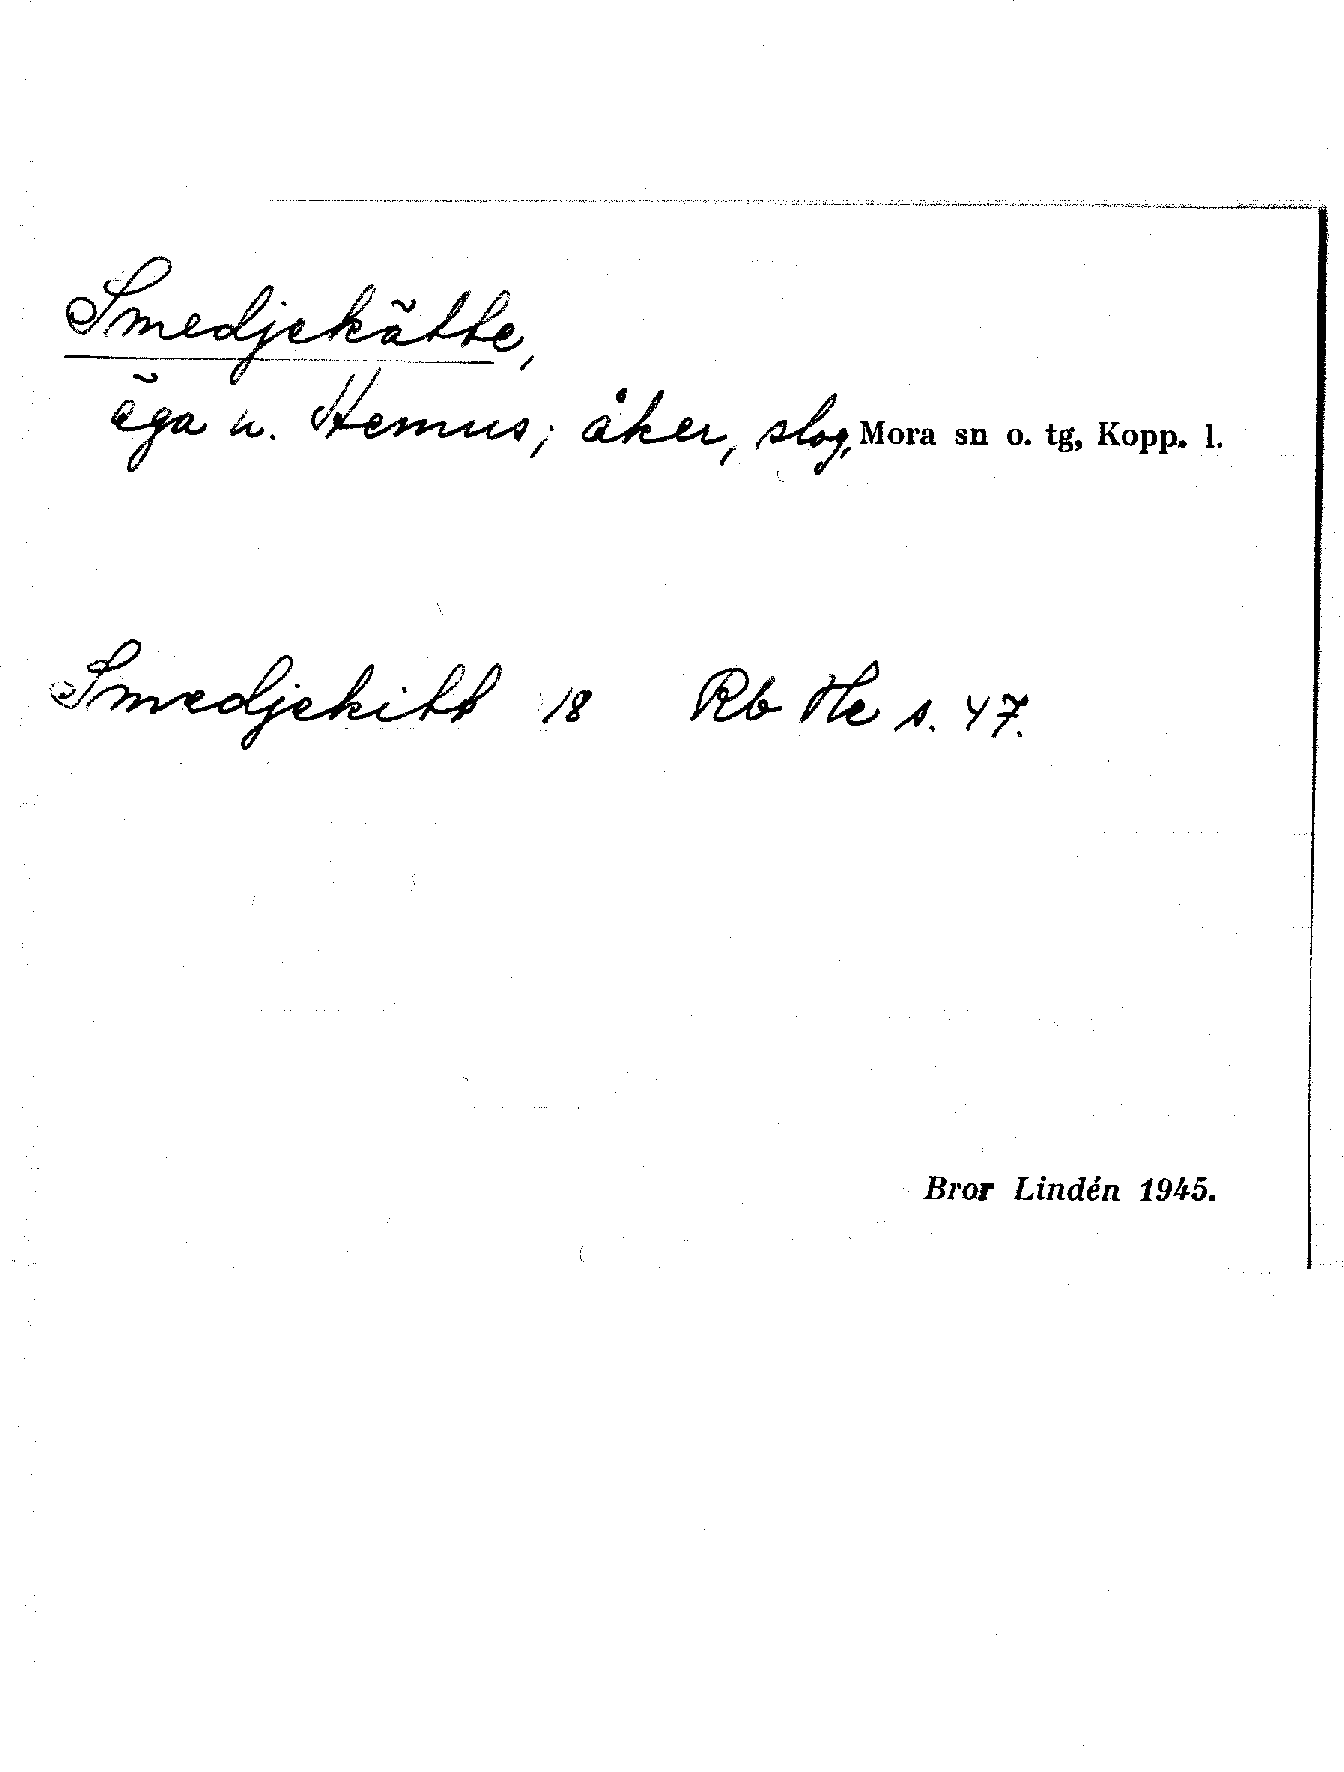 Smedjekätte,
äga u. Hemus; åker, slog, Mora sn o. tg, Kopp. l.
Smedjekitt 18 Rb He s. 47.
Bror Lindén 1945.